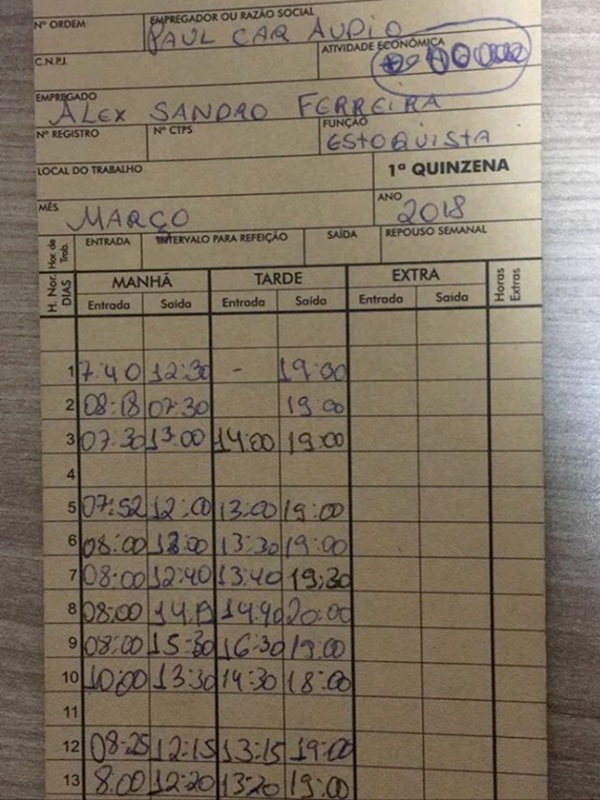 Nº ORDEM EMPREGADOR OU RAZÃO SOCIAL
PAUL CAR AUDIO
C.N.P.J. ATIVIDADE ECONÔMICA
EMPREGADO
ALEX SANDRO FERREIRA
Nº REGISTRO Nº CTPS FUNÇÃO
ESTOQUISTA
LOCAL DO TRABALHO 1ª QUINZENA
MÊS ANO
MARÇO 2018
H. Nor. Hor. de Trab. ENTRADA INTERVALO PARA REFEIÇÃO SAÍDA REPOUSO SEMANAL
DIAS MANHÃ TARDE EXTRA Horas Extras
Entrada Saída Entrada Saída Entrada Saída
1 7:40 12:30 - 19:00
2 08:18 07:30 19:00
3 07:30 13:00 14:00 19:00
4
5 07:52 12:00 13:00 19:00
6 08:00 13:30 19:00
7 08:00 12:40 13:40 19:30
8 08:00 14:40 20:00
9 08:00 15:30 16:30 19:00
10 10:00 13:30 14:30 18:00
11
12 08:25 12:15 13:15 19:00
13 8:00 12:20 13:20 19:00